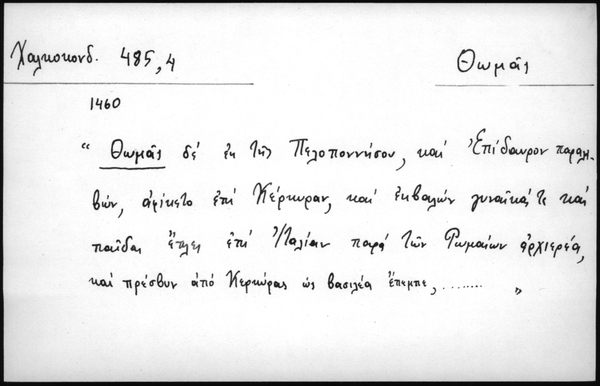 Χαλκοκονδ. 485,4 Θωμᾶς
1460
“ Θωμᾶς δέ ἐκ τῆς Πελοποννήσου, καί Ἐπίδαυρον παραλι-
βών, ἀφίκετο ἐπί Κέρκυραν, καί ἐκβαλών γυναῖκά τε καί
παῖδας ἔπλει ἐπί Ἰταλίαν παρά τῶν Ῥωμαίων ἀρχιερέα,
καί πρέσβυν ἀπό Κερκύρας ὡς βασιλέα ἔπεμπε, ........ „